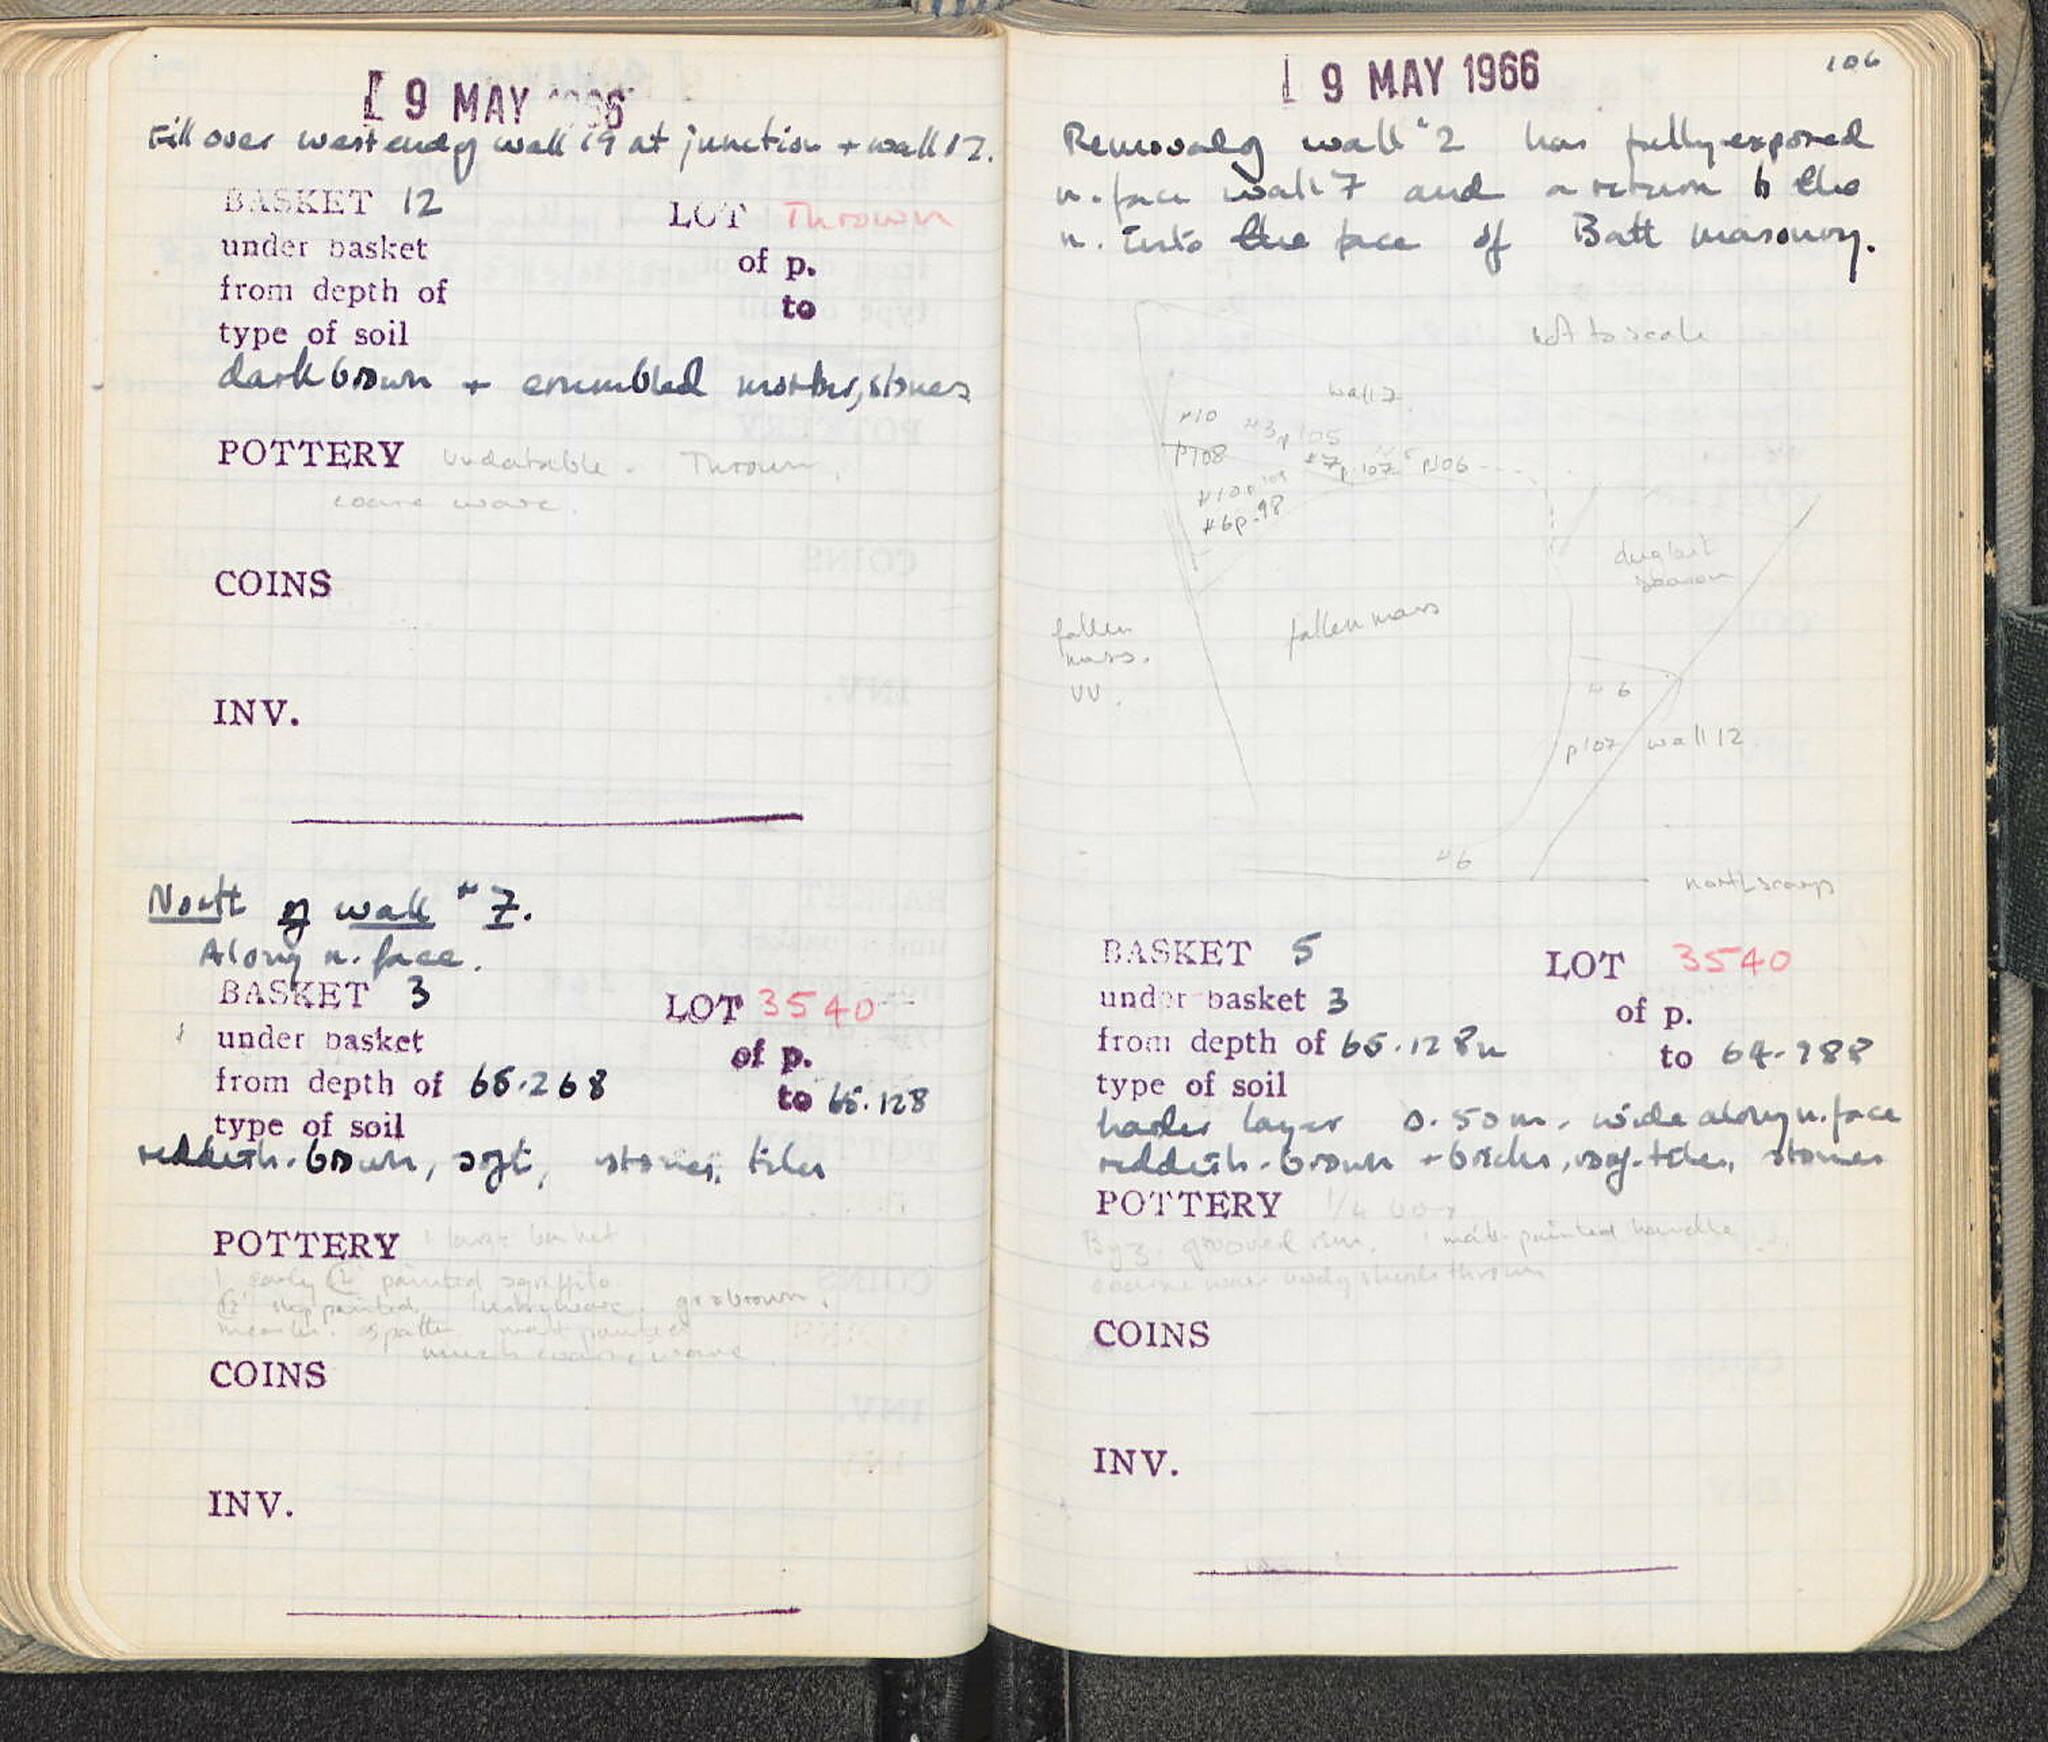 [ 9 MAY 1966
Fill over west end of wall 19 at junction + wall 12.
BASKET 12 LOT Thrown
under basket of p.
from depth of to
type of soil
dark brown + crumbled mortar, stones
POTTERY undatable. Thrown.
coarse ware.
COINS
INV.
North of wall #7.
Along n. face.
BASKET 3 LOT 3540
under basket of p.
from depth of 65.268 to 65.128
type of soil
reddish-brown, soft, stones, tiles
POTTERY 1 large basket
1 early painted sgraffito
slip painted, gr. brown.
spatter matt painted
much coarse ware
COINS
INV.
[ 9 MAY 1966
106
Removal of wall #2 has fully exposed
n. face wall 7 and a return to the
n. into the face of Batt masonry.
not to scale
wall 7
#10 #3 p 105
p108 #7 p. 107 #5 p106
#10 p 105
#6 p. 98
dug last
season
fallen
mass.
UU.
fallen mass
#6
p107 wall 12
#6
north scarp
BASKET 5 LOT 3540
under basket 3 of p.
from depth of 65.128m to 64.988
type of soil
harder layer 0.50m. wide along n. face
reddish-brown + bricks, roof-tiles, stones
POTTERY 1/4 box
Byz. grooved rim, 1 matt-painted handle
coarse ware body sherds thrown
COINS
INV.